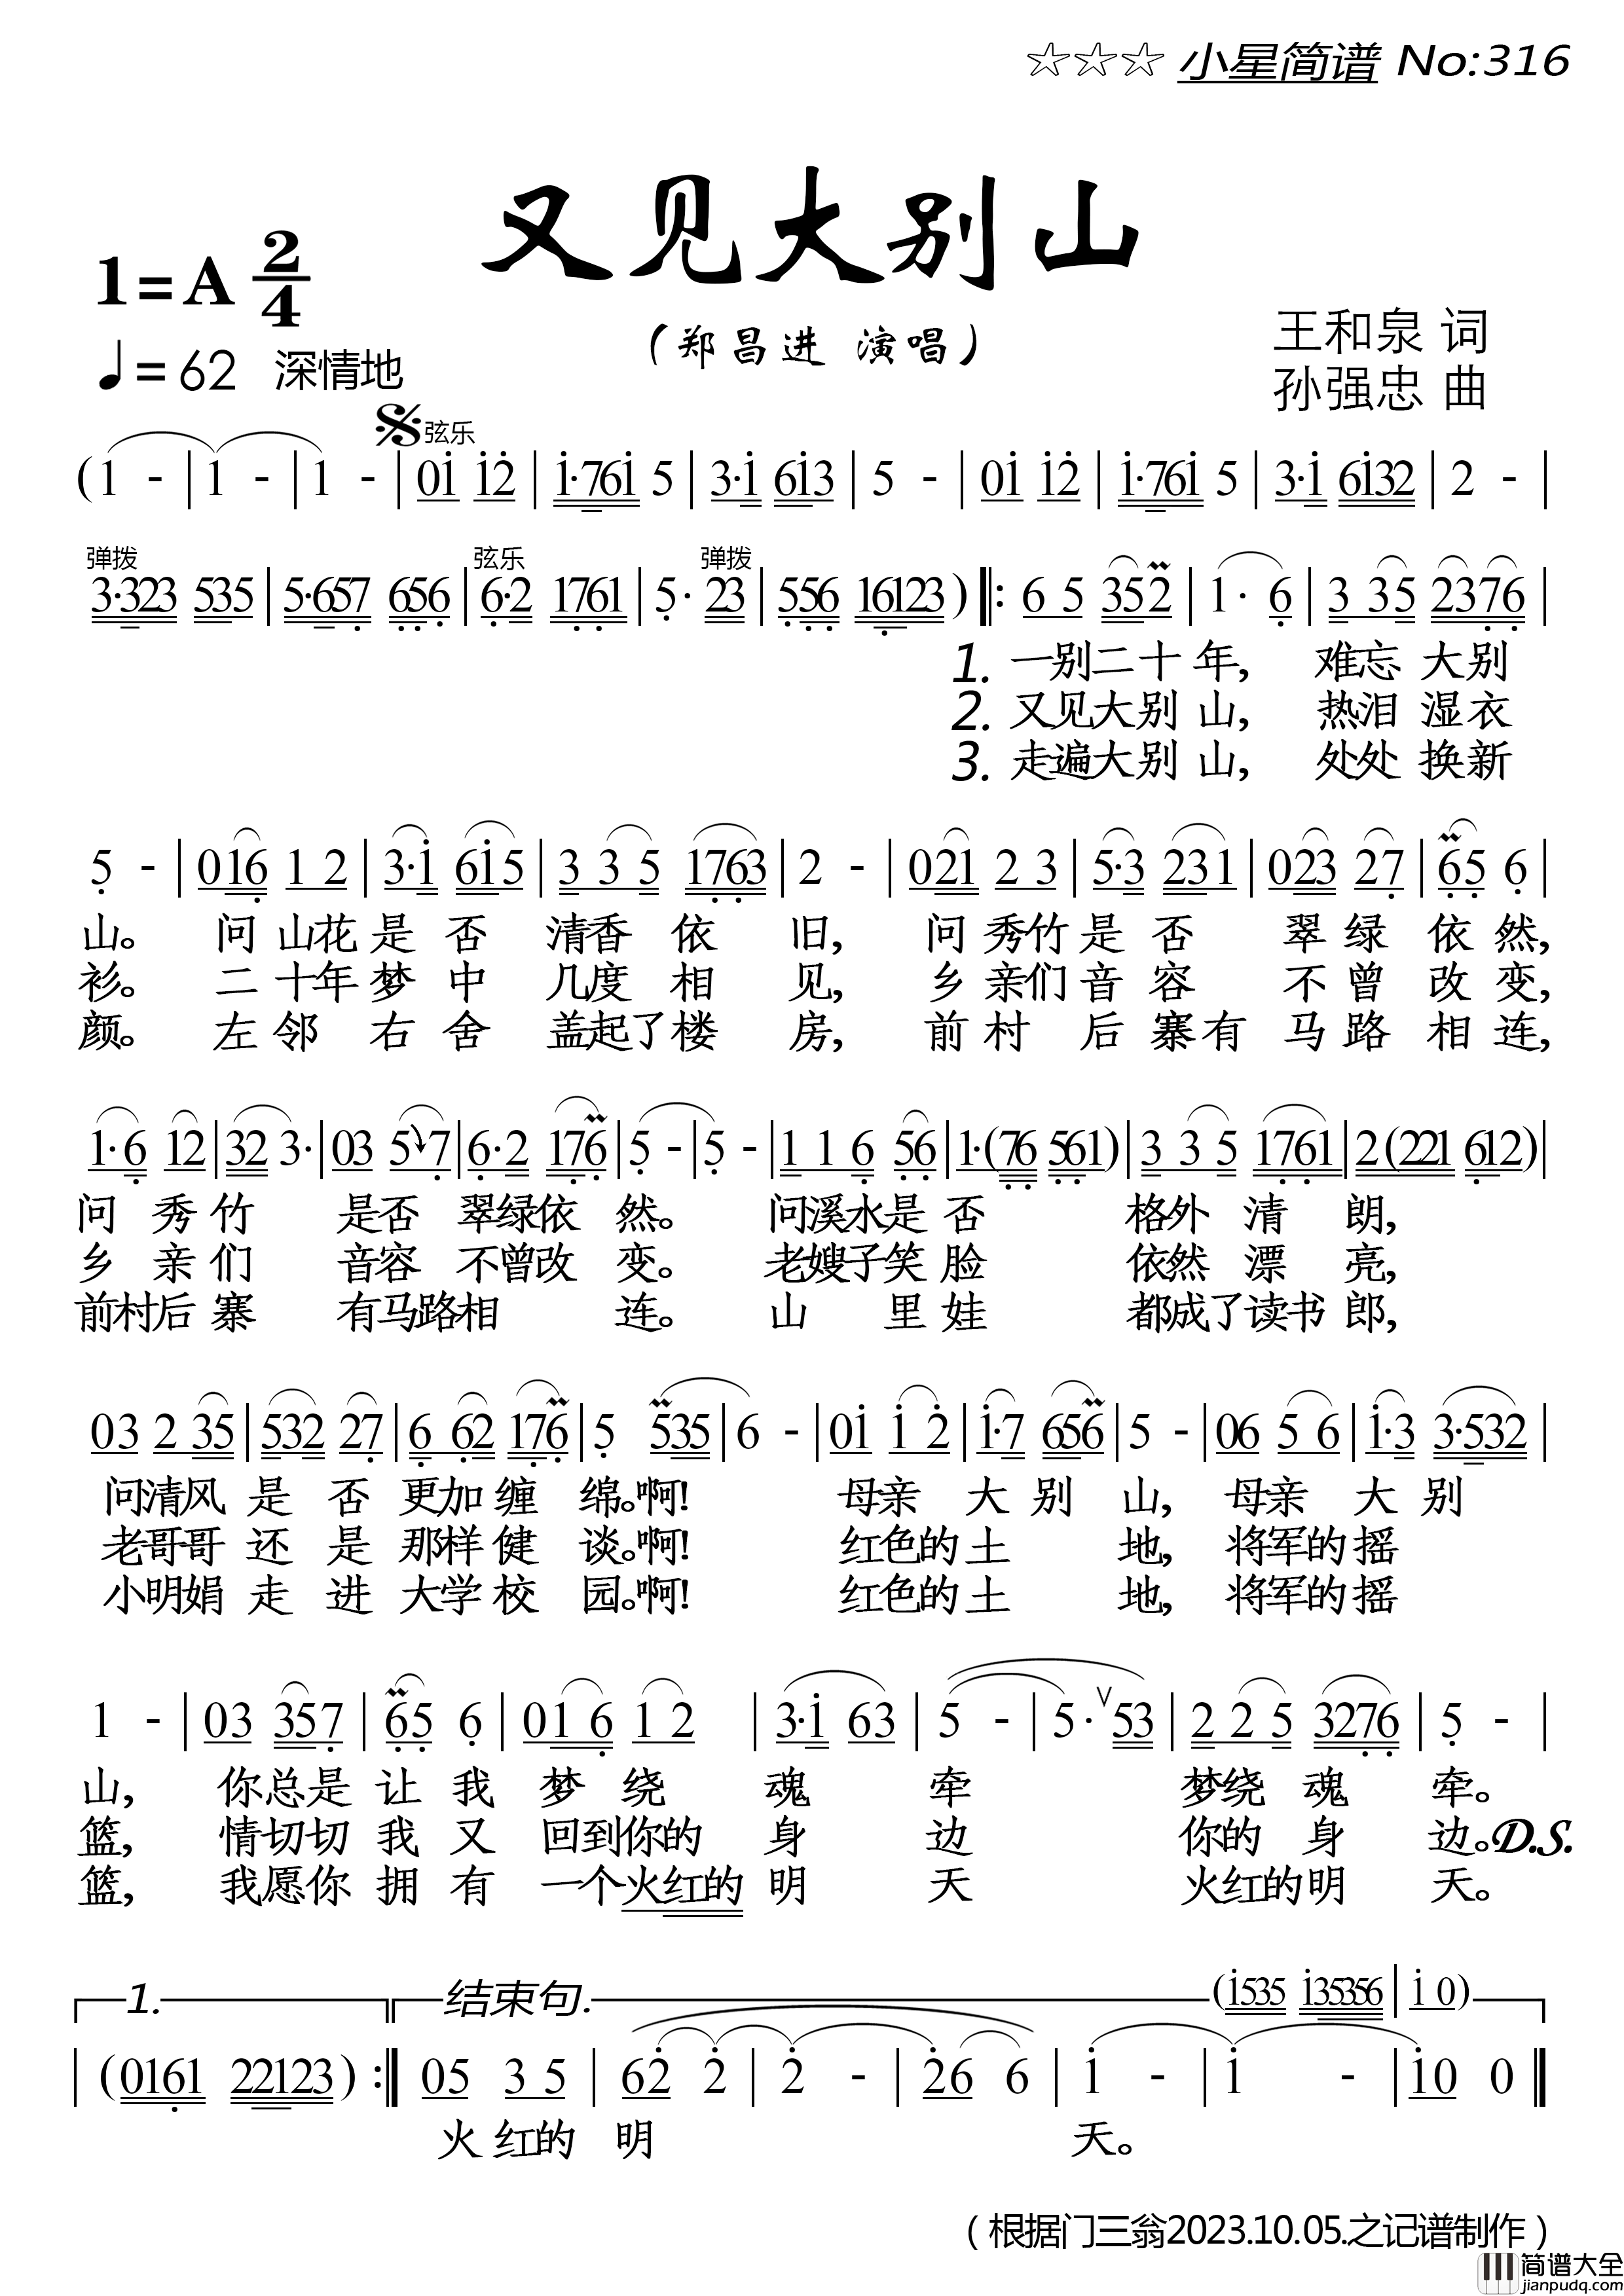 ☆☆☆ 小星简谱 No:316
又见大别山
1=A 2/4
(郑昌进 演唱)
王和泉 词
♩=62 深情地
孙强忠 曲
弦乐
(1 - | 1 - | 1 - | 0i i2 | i·76i 5 | 3·i 6i3 | 5 - | 0i i2 | i·76i 5 | 3·i 6i32 | 2 - |
弹拨 弦乐 弹拨
3·323 535 | 5·657 656 | 6·2 1761 | 5· 23 | 556 16123) ‖: 6 5 352 | 1· 6 | 3 35 2376 |
1. 一别二十年, 难忘大别
2. 又见大别山, 热泪湿衣
3. 走遍大别山, 处处换新
5 - | 016 1 2 | 3·i 6i5 | 3 3 5 1763 | 2 - | 021 2 3 | 5·3 231 | 023 27 | 65 6 |
山。 问山花是否清香依旧, 问秀竹是否翠绿依然,
衫。 二十年梦中几度相见, 乡亲们音容不曾改变,
颜。 左邻右舍盖起了楼房, 前村后寨有马路相连,
1·6 12 | 32 3· | 03 5 7 | 6·2 176 | 5 - | 5 - | 1 1 6 56 | 1·(76 561) | 3 3 5 1761 | 2(221 612) |
问秀竹是否翠绿依然。 问溪水是否格外清朗,
乡亲们音容不曾改变。 老嫂子笑脸依然漂亮,
前村后寨有马路相连。 山里娃都成了读书郎,
03 2 35 | 532 27 | 6 62 176 | 5 535 | 6 - | 0i i 2 | i·7 656 | 5 - | 06 5 6 | i·3 3·532 |
问清风是否更加缠绵。啊! 母亲大别山, 母亲大别
老哥哥还是那样健谈。啊! 红色的土地, 将军的摇
小明娟走进大学校园。啊! 红色的土地, 将军的摇
1 - | 03 357 | 65 6 | 01 6 1 2 | 3·i 63 | 5 - | 5· V 53 | 2 2 5 3276 | 5 - |
山, 你总是让我梦绕魂牵 梦绕魂牵。
篮, 情切切我又回到你的身边 你的身边。D.S.
篮, 我愿你拥有一个火红的明天 火红的明天。
1. 结束句. (i535 i35356 | i 0)
| (0161 22123) :‖ 05 3 5 | 62 2 | 2 - | 26 6 | i - | i - | i0 0 ‖
火红的明天。
(根据门三翁2023.10.05.之记谱制作)
简谱大全
jianpudq.com